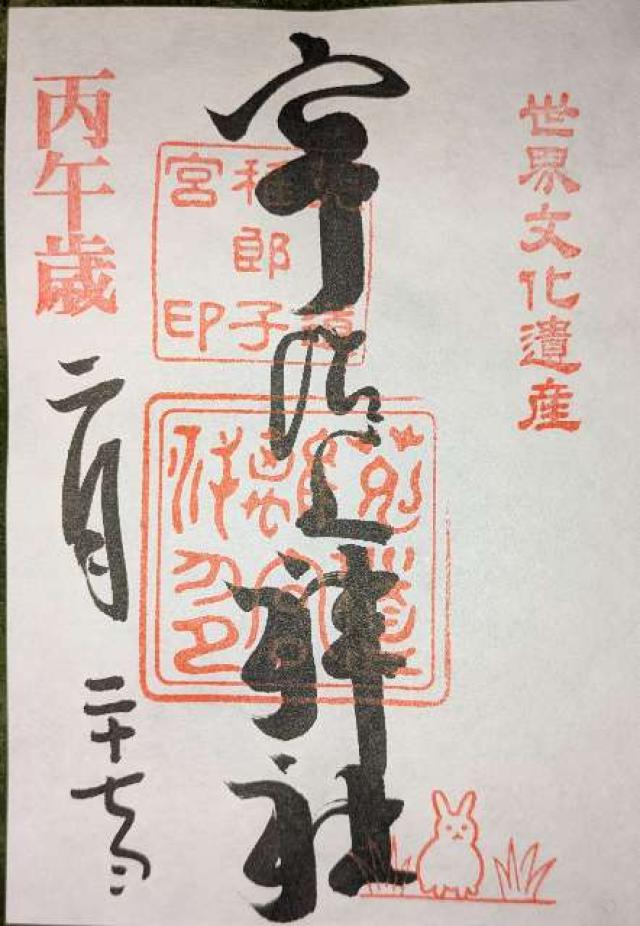 世界文化遺産
宇治上神社
菟道
稚郎子
宮印
菟道
離宮
丙午歳
二月二十七日